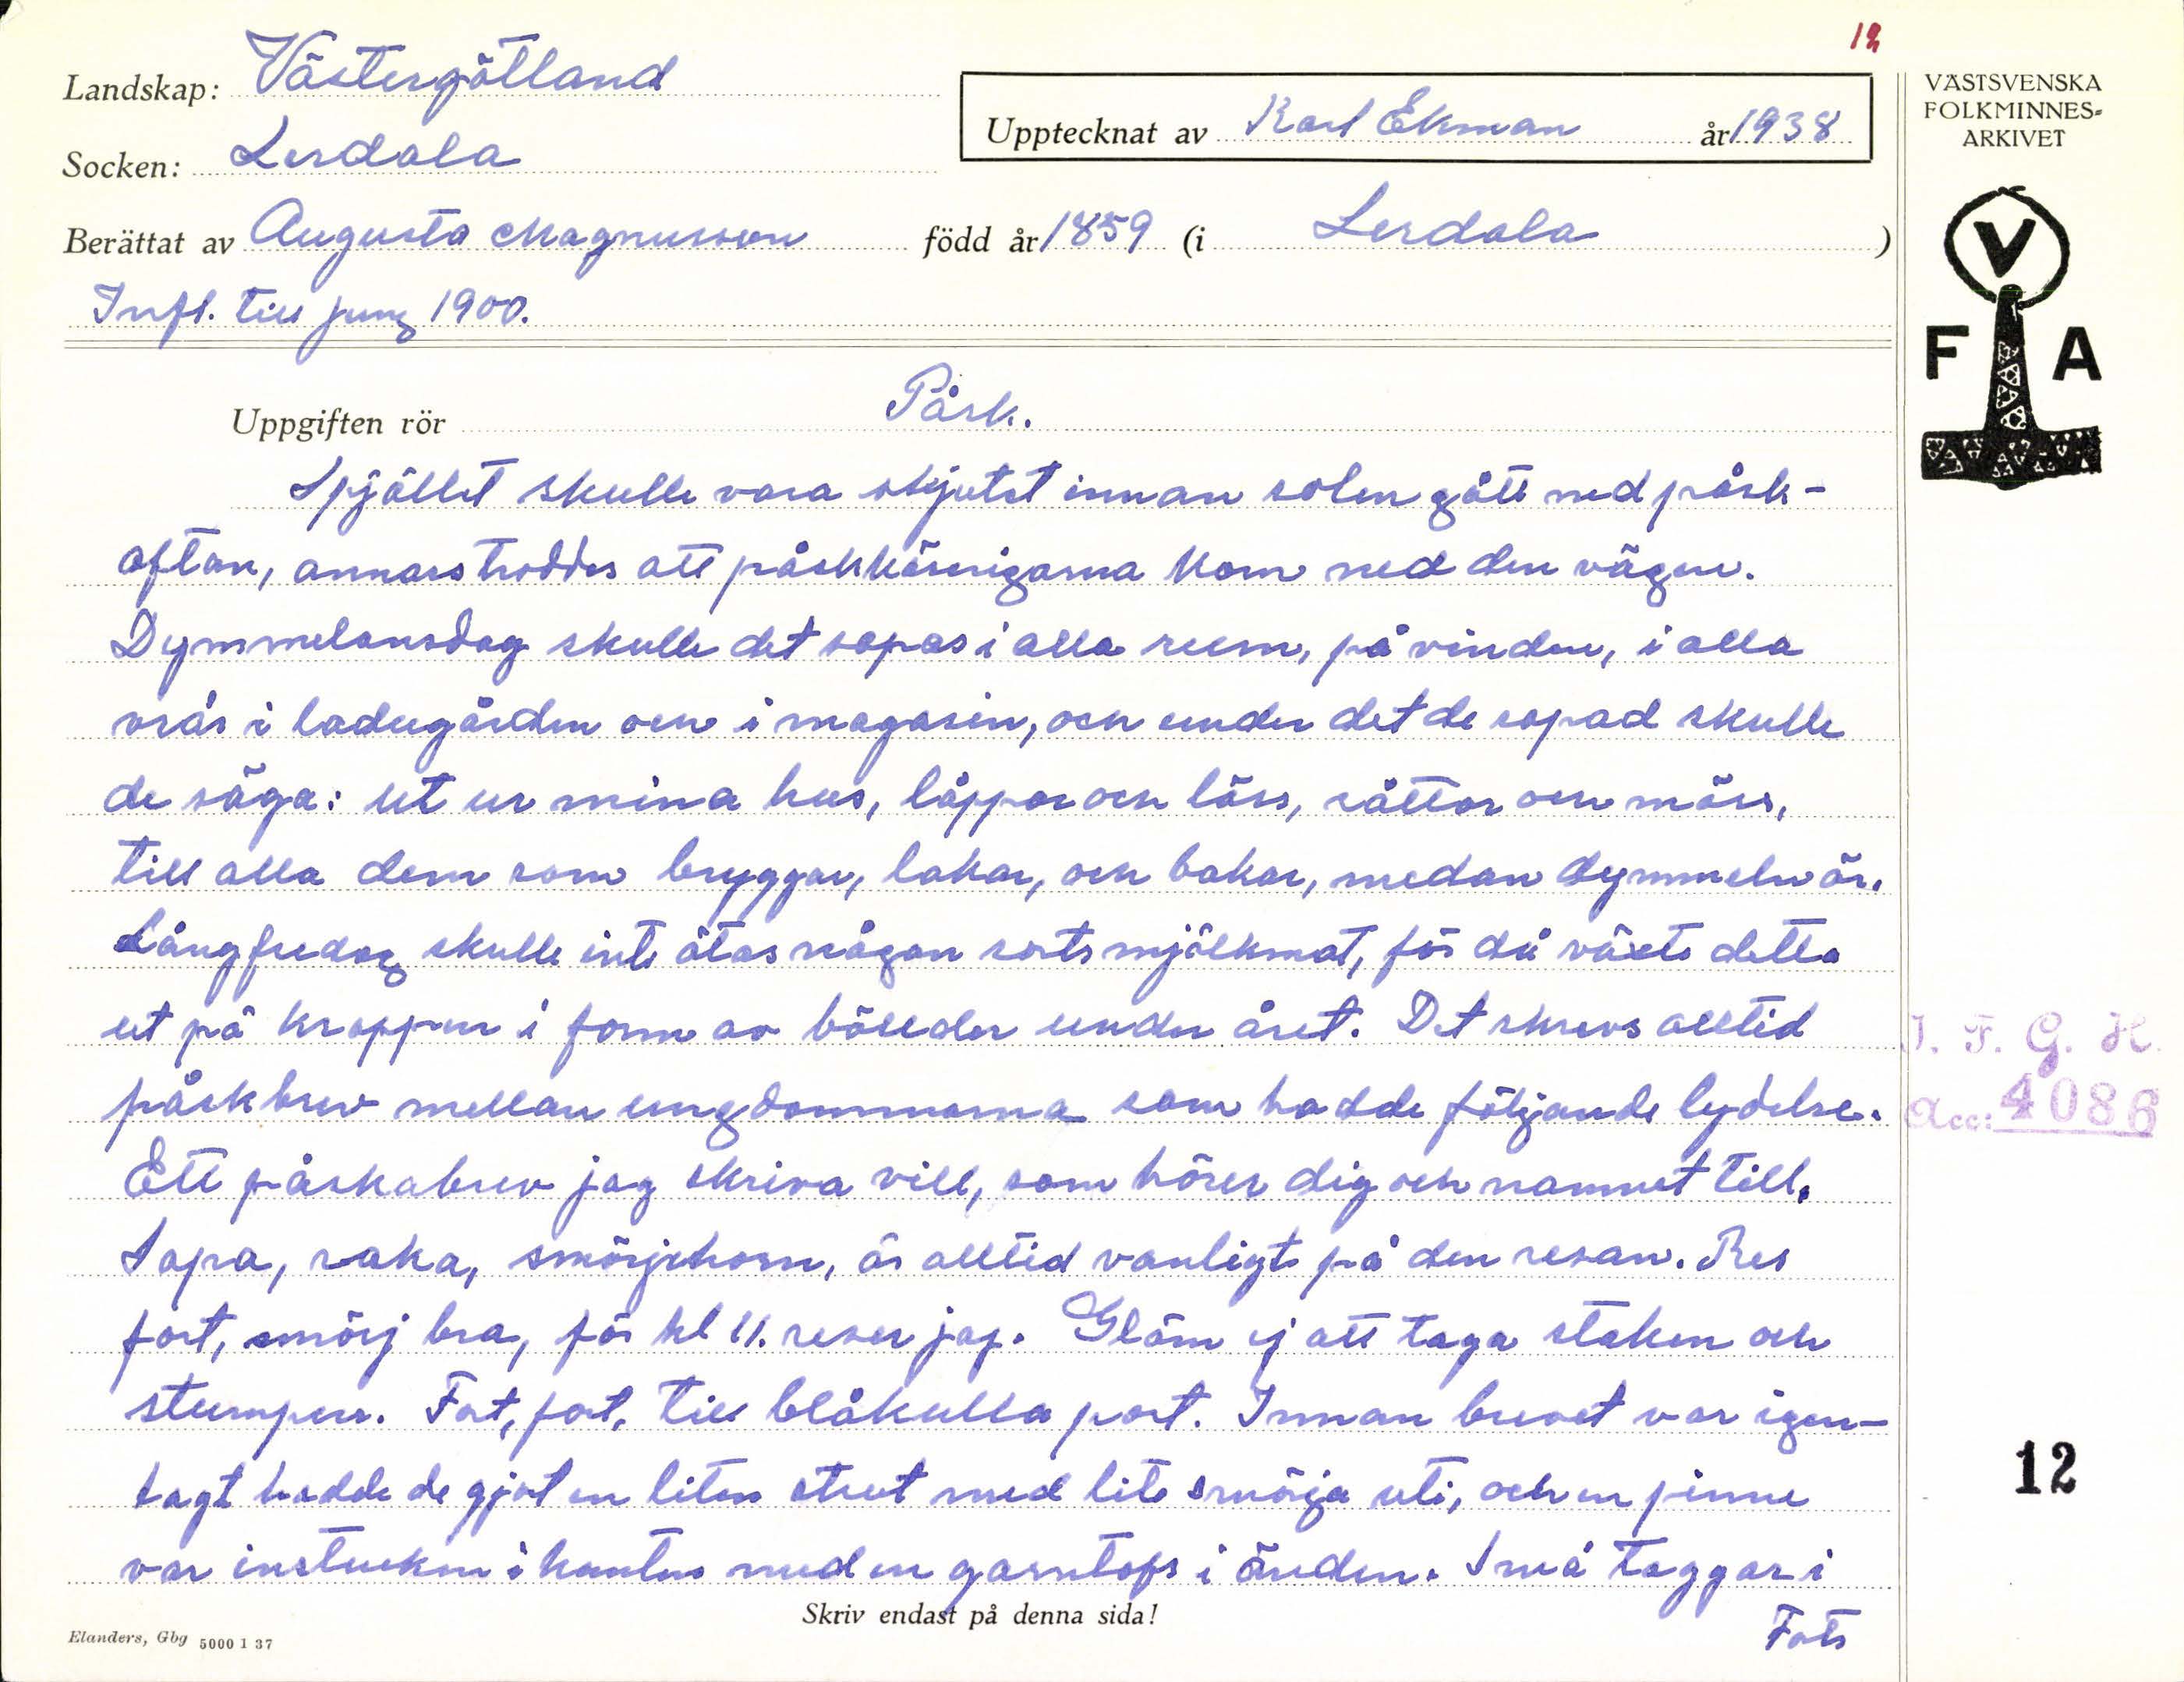 12
Landskap: Västergötland
Socken: Lerdala
Upptecknat av Karl Ekman år 1938
Berättat av Augusta Magnusson född år 1859 (i Lerdala)
Infl. till jung 1900.
VÄSTSVENSKA
FOLKMINNES-
ARKIVET
V
F A
Uppgiften rör Påsk.
Spjället skulle vara skjutet innan solen gått ned påsk-
afton, annars troddes att påskkäringarna kom ned den vägen.
Dymmelonsdag skulle det sopas i alla rum, på vinden, i alla
vrår i ladugården och i magasin, och under det de sopad skulle
de säga: ut ur mina hus, loppor och löss, råttor och möss,
till alla dem som bryggar, lakar, och bakar, medan dymmeln är.
Långfredag skulle inte ätas någon sorts mjölkmat, för då växte detta
ut på kroppen i form av bölder under året. Det skrevs alltid
påskbrev mellan ungdommarna som hadde följande lydelse.
Ett påskabrev jag skriva vill, som hörer dig och namnet till.
Sopa, raka, smörjehorn, är alltid vanligt på den resan. Res
fort, smörj bra, för kl 11. reser jag. Glöm ej att taga staken och
stumpen. Fort, fort, till blåkulla port. Innan brevet var igen-
lagt hadde de gjort en liten strut med lite smörja uti, och en pinne
var instucken i kanten med en garntofs i änden. Små taggar i
Forts
J. F. G. H.
Acc: 4086
12
Skriv endast på denna sida!
Elanders, Gbg 5000 1 37